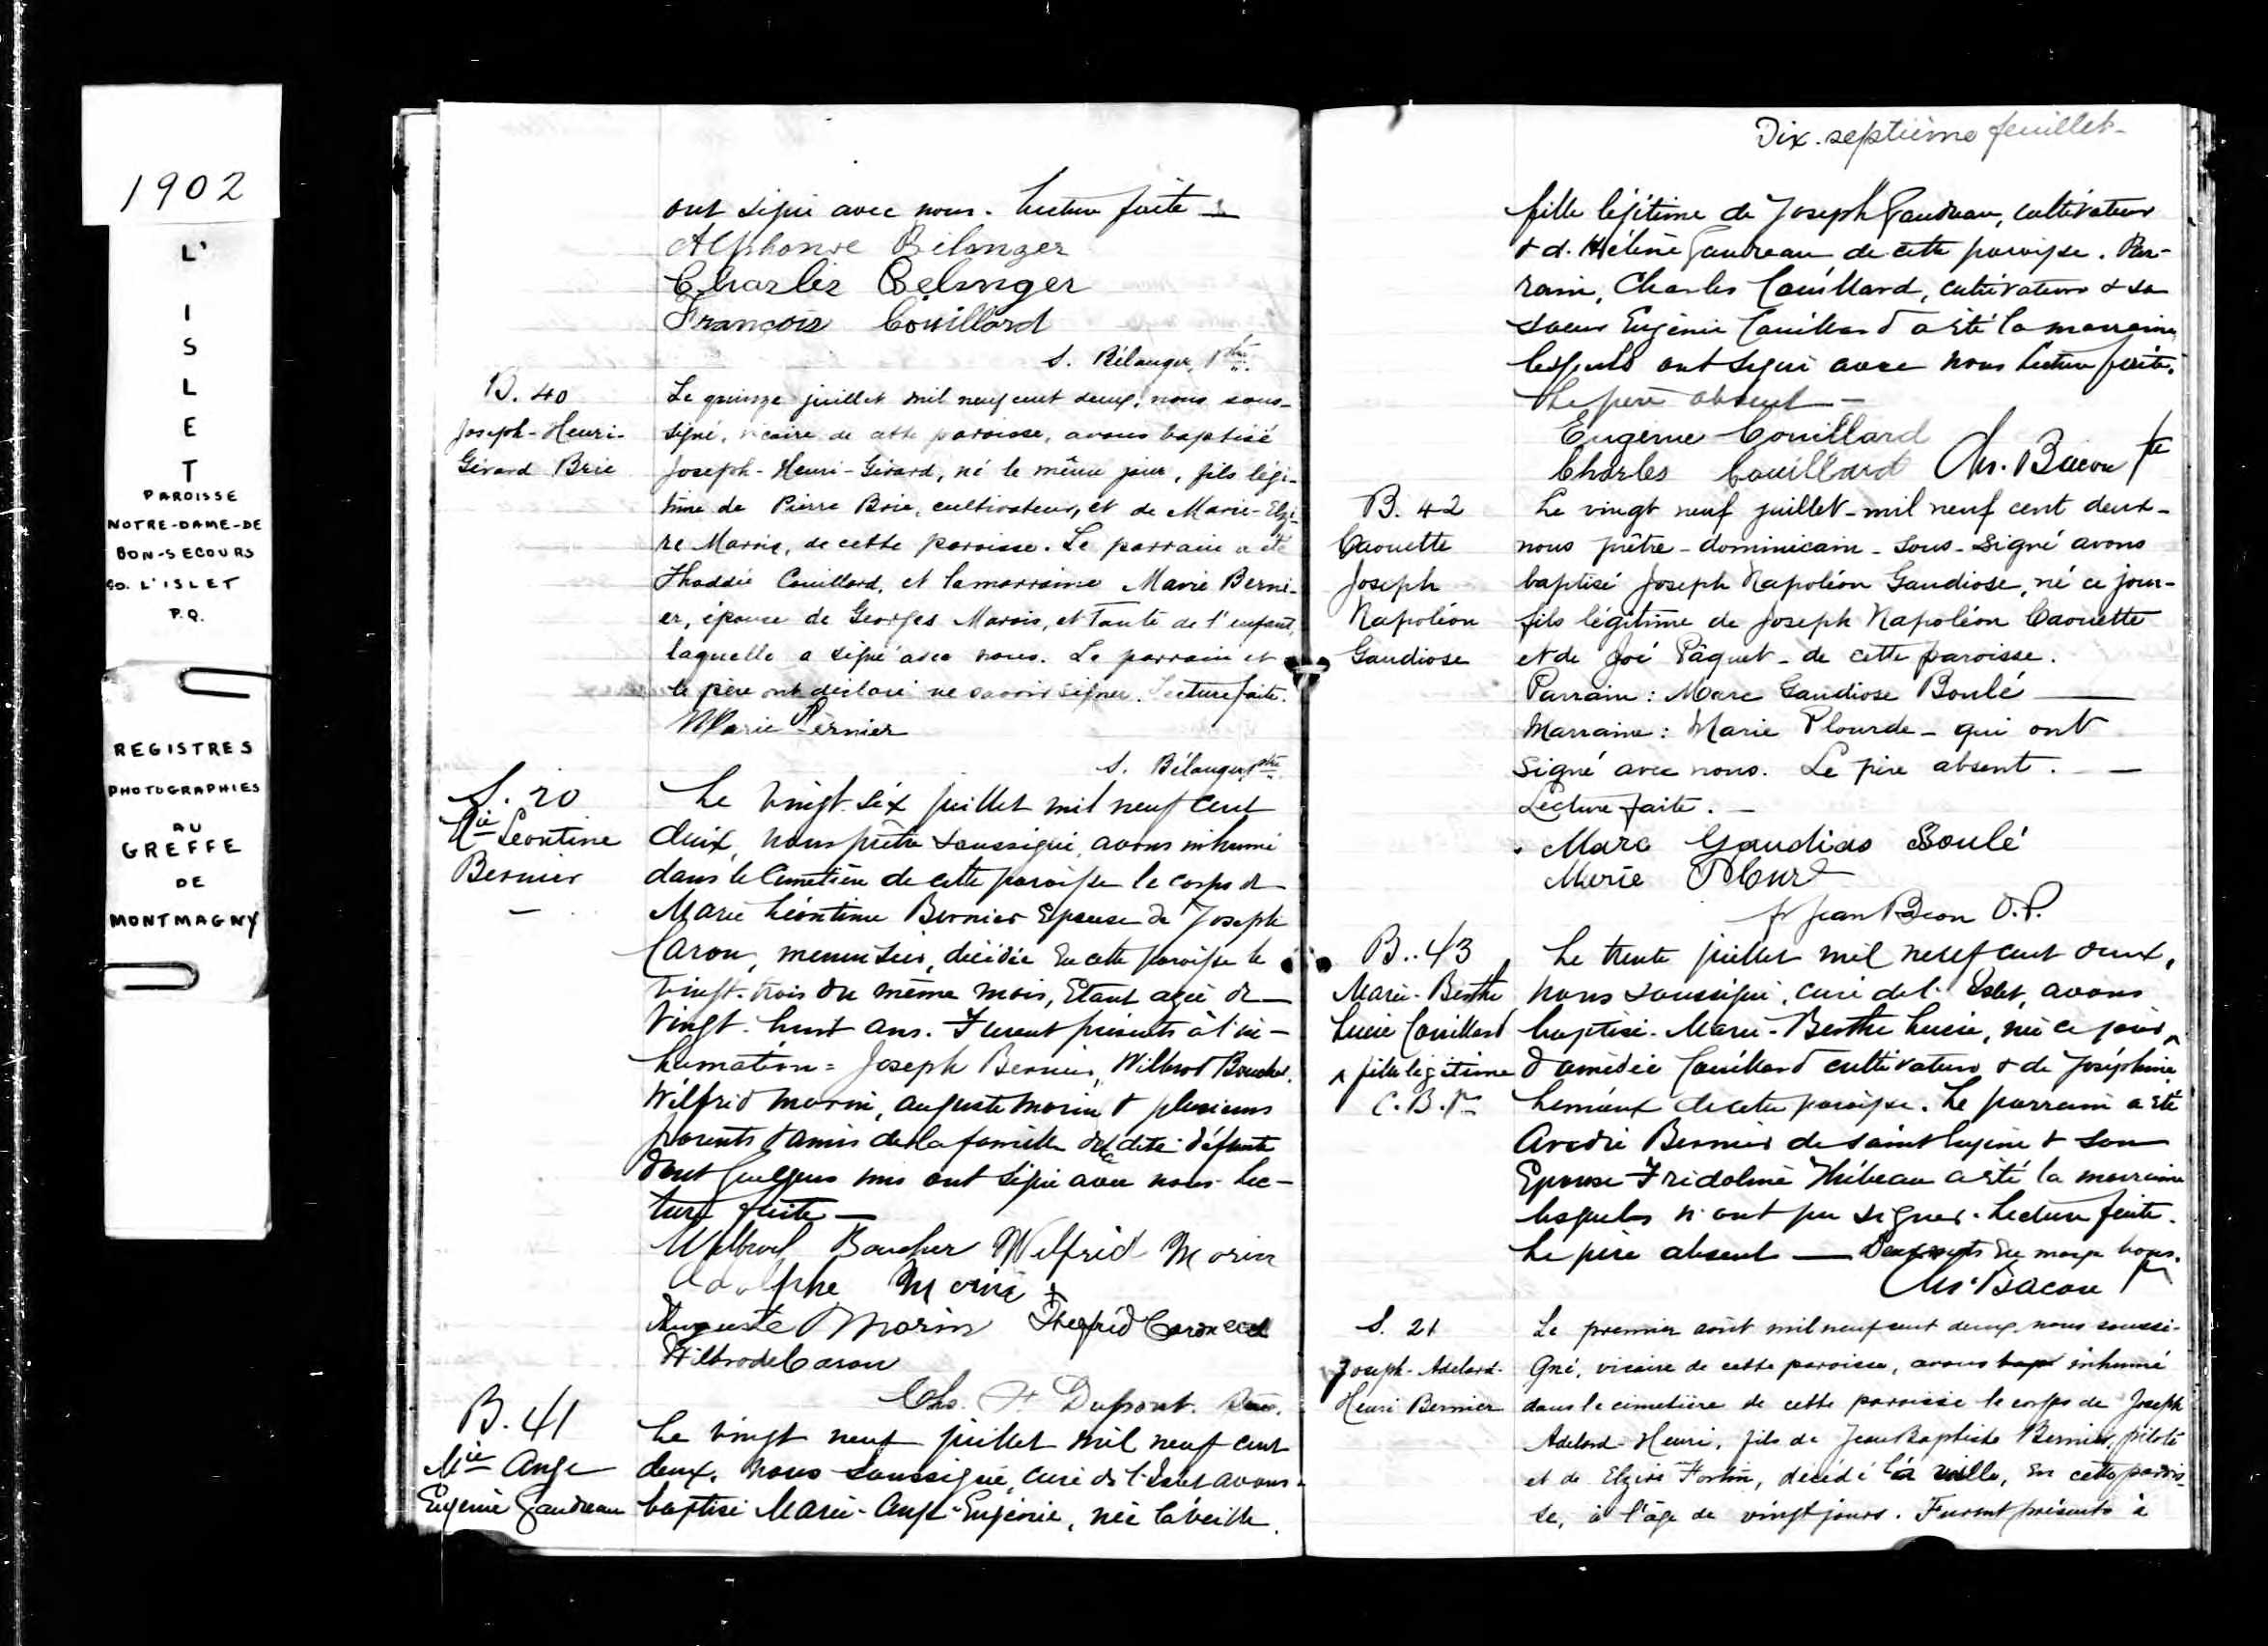 1902
L'
I
S
L
E
T
PAROISSE
NOTRE-DAME-DE
BON-SECOURS
CO. L'ISLET
P.Q.
REGISTRES
PHOTOGRAPHIES
AU
GREFFE
DE
MONTMAGNY
ont signé avec nous. Lecture faite
Alphonse Bélanger
Charles Belanger
François Couillard
S. Bélanger, Ptre
B. 40
Joseph-Henri-
Gérard Brie
Le quinze juillet mil neuf cent deux, nous sous-
signé, vicaire de cette paroisse, avons baptisé
Joseph-Henri-Gérard, né le même jour, fils légi-
time de Pierre Brie, cultivateur, et de Marie-Elzi-
re Marois, de cette paroisse. Le parrain a été
Thaddée Couillard, et la marraine Marie Berni-
er, épouse de Georges Marois, et tante de l'enfant,
laquelle a signé avec nous. Le parrain et
le père ont déclaré ne savoir signer. Lecture faite.
Marie Bernier
S. Bélanger, ptre
S. 20
Mie Léontine
Bernier
Le vingt-six juillet mil neuf cent
deux, nous prêtre soussigné, avons inhumé
dans le cimetière de cette paroisse le corps de
Marie Léontine Bernier épouse de Joseph
Caron, menuisier, décédée en cette paroisse le
vingt-trois du même mois, étant agée de
vingt-huit ans. Furent présents à l'in-
humation = Joseph Bernier, Wilbrod Boucher,
Wilfrid Morin, Auguste Morin & plusieurs
parents & amis de la famille de la dite défunte
dont quelques uns ont signé avec nous. Lec-
ture faite —
Wilbrod Boucher Wilfrid Morin
Adolphe Morin
Auguste Morin Theofrid Caron
Wilbrode Caron
Chs. Dupont
B. 41
Mie Ange
Eugénie Gaudreau
Le vingt neuf juillet mil neuf cent
deux, nous soussigné, curé de l'Islet avons
baptisé Marie-Ange-Eugénie, née la veille,
Dix-septième feuillet
fille légitime de Joseph Gaudreau, cultivateur
& d'Hélène Gaudreau de cette paroisse. Par-
rain, Charles Couillard, cultivateur & sa
soeur Eugénie Couillard a été la marraine
lesquels ont signé avec nous Lecture faite.
Le père absent —
Eugénie Couillard
Charles Couillard Chs. Bacon Ptre
B. 42
Caouette
Joseph
Napoléon
Gaudiose
Le vingt neuf juillet mil neuf cent deux-
nous prêtre-dominicain-sous-signé avons
baptisé Joseph Napoléon Gaudiose, né ce jour-
fils légitime de Joseph Napoléon Caouette
et de Zoé Pâquet-de cette paroisse.
Parrain : Marc Gaudiose Boulé
Marraine : Marie Plourde - qui ont
signé avec nous. Le père absent. —
Lecture faite. —
Marc Gaudias Boulé
Marie Plourd
fr Jean Bacon O.P.
B. 43
Marie-Berthe
Lucie Couillard
^ fille légitime
C. B. Ptre
Le trente juillet mil neuf cent deux,
nous soussigné, curé de l'Islet, avons
baptisé Marie-Berthe Lucie, née ce jour, ^
d'Amédée Couillard cultivateur & de Joséphine
Lemieux de cette paroisse. Le parrain a été
Bernier de Saint Eugène & son
Epouse Fridoline Thibeau a été la marraine
lesquels n'ont pu signer. Lecture faite.
Le père absent — Deux mots en marge bons.
Chs Bacon Ptre
S. 21
Joseph-Adelard-
Henri Bernier
Le premier août mil neuf cent deux, nous soussi-
gné, vicaire de cette paroisse, avons bap inhumé
dans le cimetière de cette paroisse le corps de Joseph
Adelard-Henri, fils de Jean Baptiste Bernier, pilote
et de Elzire Fortin, décédé la veille, en cette parois-
se, à l'âge de vingt jours. Furent présents à